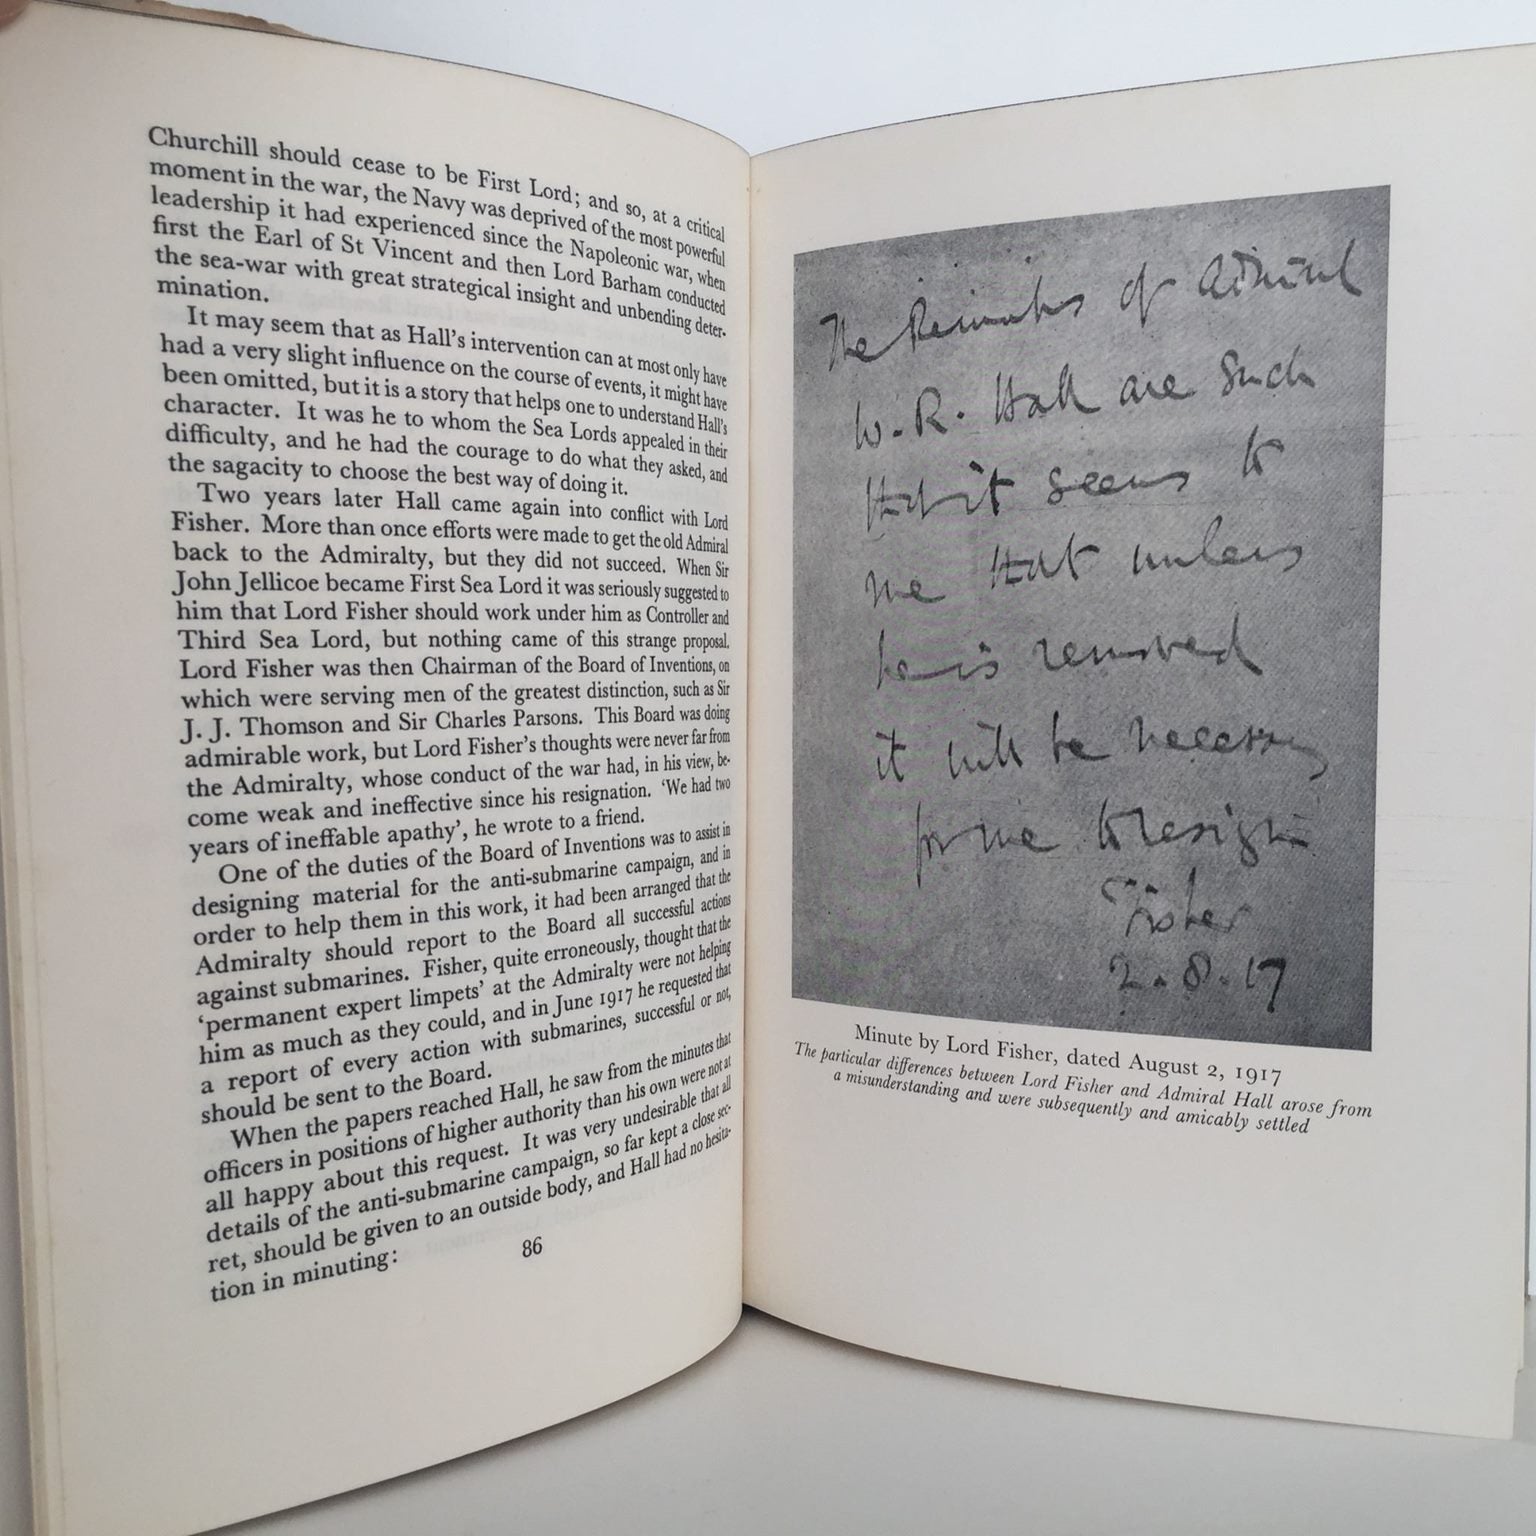 Churchill should cease to be First Lord; and so, at a critical
moment in the war, the Navy was deprived of the most powerful
leadership it had experienced since the Napoleonic war, when
first the Earl of St Vincent and then Lord Barham conducted
the sea-war with great strategical insight and unbending deter-
mination.
It may seem that as Hall's intervention can at most only have
had a very slight influence on the course of events, it might have
been omitted, but it is a story that helps one to understand Hall's
character. It was he to whom the Sea Lords appealed in their
difficulty, and he had the courage to do what they asked, and
the sagacity to choose the best way of doing it.
Two years later Hall came again into conflict with Lord
Fisher. More than once efforts were made to get the old Admiral
back to the Admiralty, but they did not succeed. When Sir
John Jellicoe became First Sea Lord it was seriously suggested to
him that Lord Fisher should work under him as Controller and
Third Sea Lord, but nothing came of this strange proposal.
Lord Fisher was then Chairman of the Board of Inventions, on
which were serving men of the greatest distinction, such as Sir
J. J. Thomson and Sir Charles Parsons. This Board was doing
admirable work, but Lord Fisher's thoughts were never far from
the Admiralty, whose conduct of the war had, in his view, be-
come weak and ineffective since his resignation. 'We had two
years of ineffable apathy', he wrote to a friend.
One of the duties of the Board of Inventions was to assist in
designing material for the anti-submarine campaign, and in
order to help them in this work, it had been arranged that the
Admiralty should report to the Board all successful actions
against submarines. Fisher, quite erroneously, thought that the
'permanent expert limpets' at the Admiralty were not helping
him as much as they could, and in June 1917 he requested that
a report of every action with submarines, successful or not,
should be sent to the Board.
When the papers reached Hall, he saw from the minutes that
officers in positions of higher authority than his own were not at
all happy about this request. It was very undesirable that all
details of the anti-submarine campaign, so far kept a close sec-
ret, should be given to an outside body, and Hall had no hesita-
tion in minuting:
86
The Remarks of Admiral
W.R. Hall are such
that it seems to
me that unless
he is removed
it will be necessary
for me to resign
Fisher
2.8.17
Minute by Lord Fisher, dated August 2, 1917
The particular differences between Lord Fisher and Admiral Hall arose from
a misunderstanding and were subsequently and amicably settled